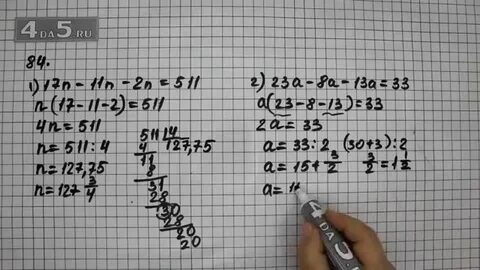 4 DA 5.RU
84.
1) 17n - 11n - 2n = 511
n(17 - 11 - 2) = 511
4n = 511
n = 511 : 4
n = 127,75
n = 127 3/4
511 | 4
4 127,75
11
8
31
28
30
28
20
20
2) 23a - 8a - 13a = 33
a(23 - 8 - 13) = 33
2a = 33
a = 33 : 2 (30+3) : 2
a = 15 + 3/2 3/2 = 1 1/2
a = 1
4 DA 5.RU